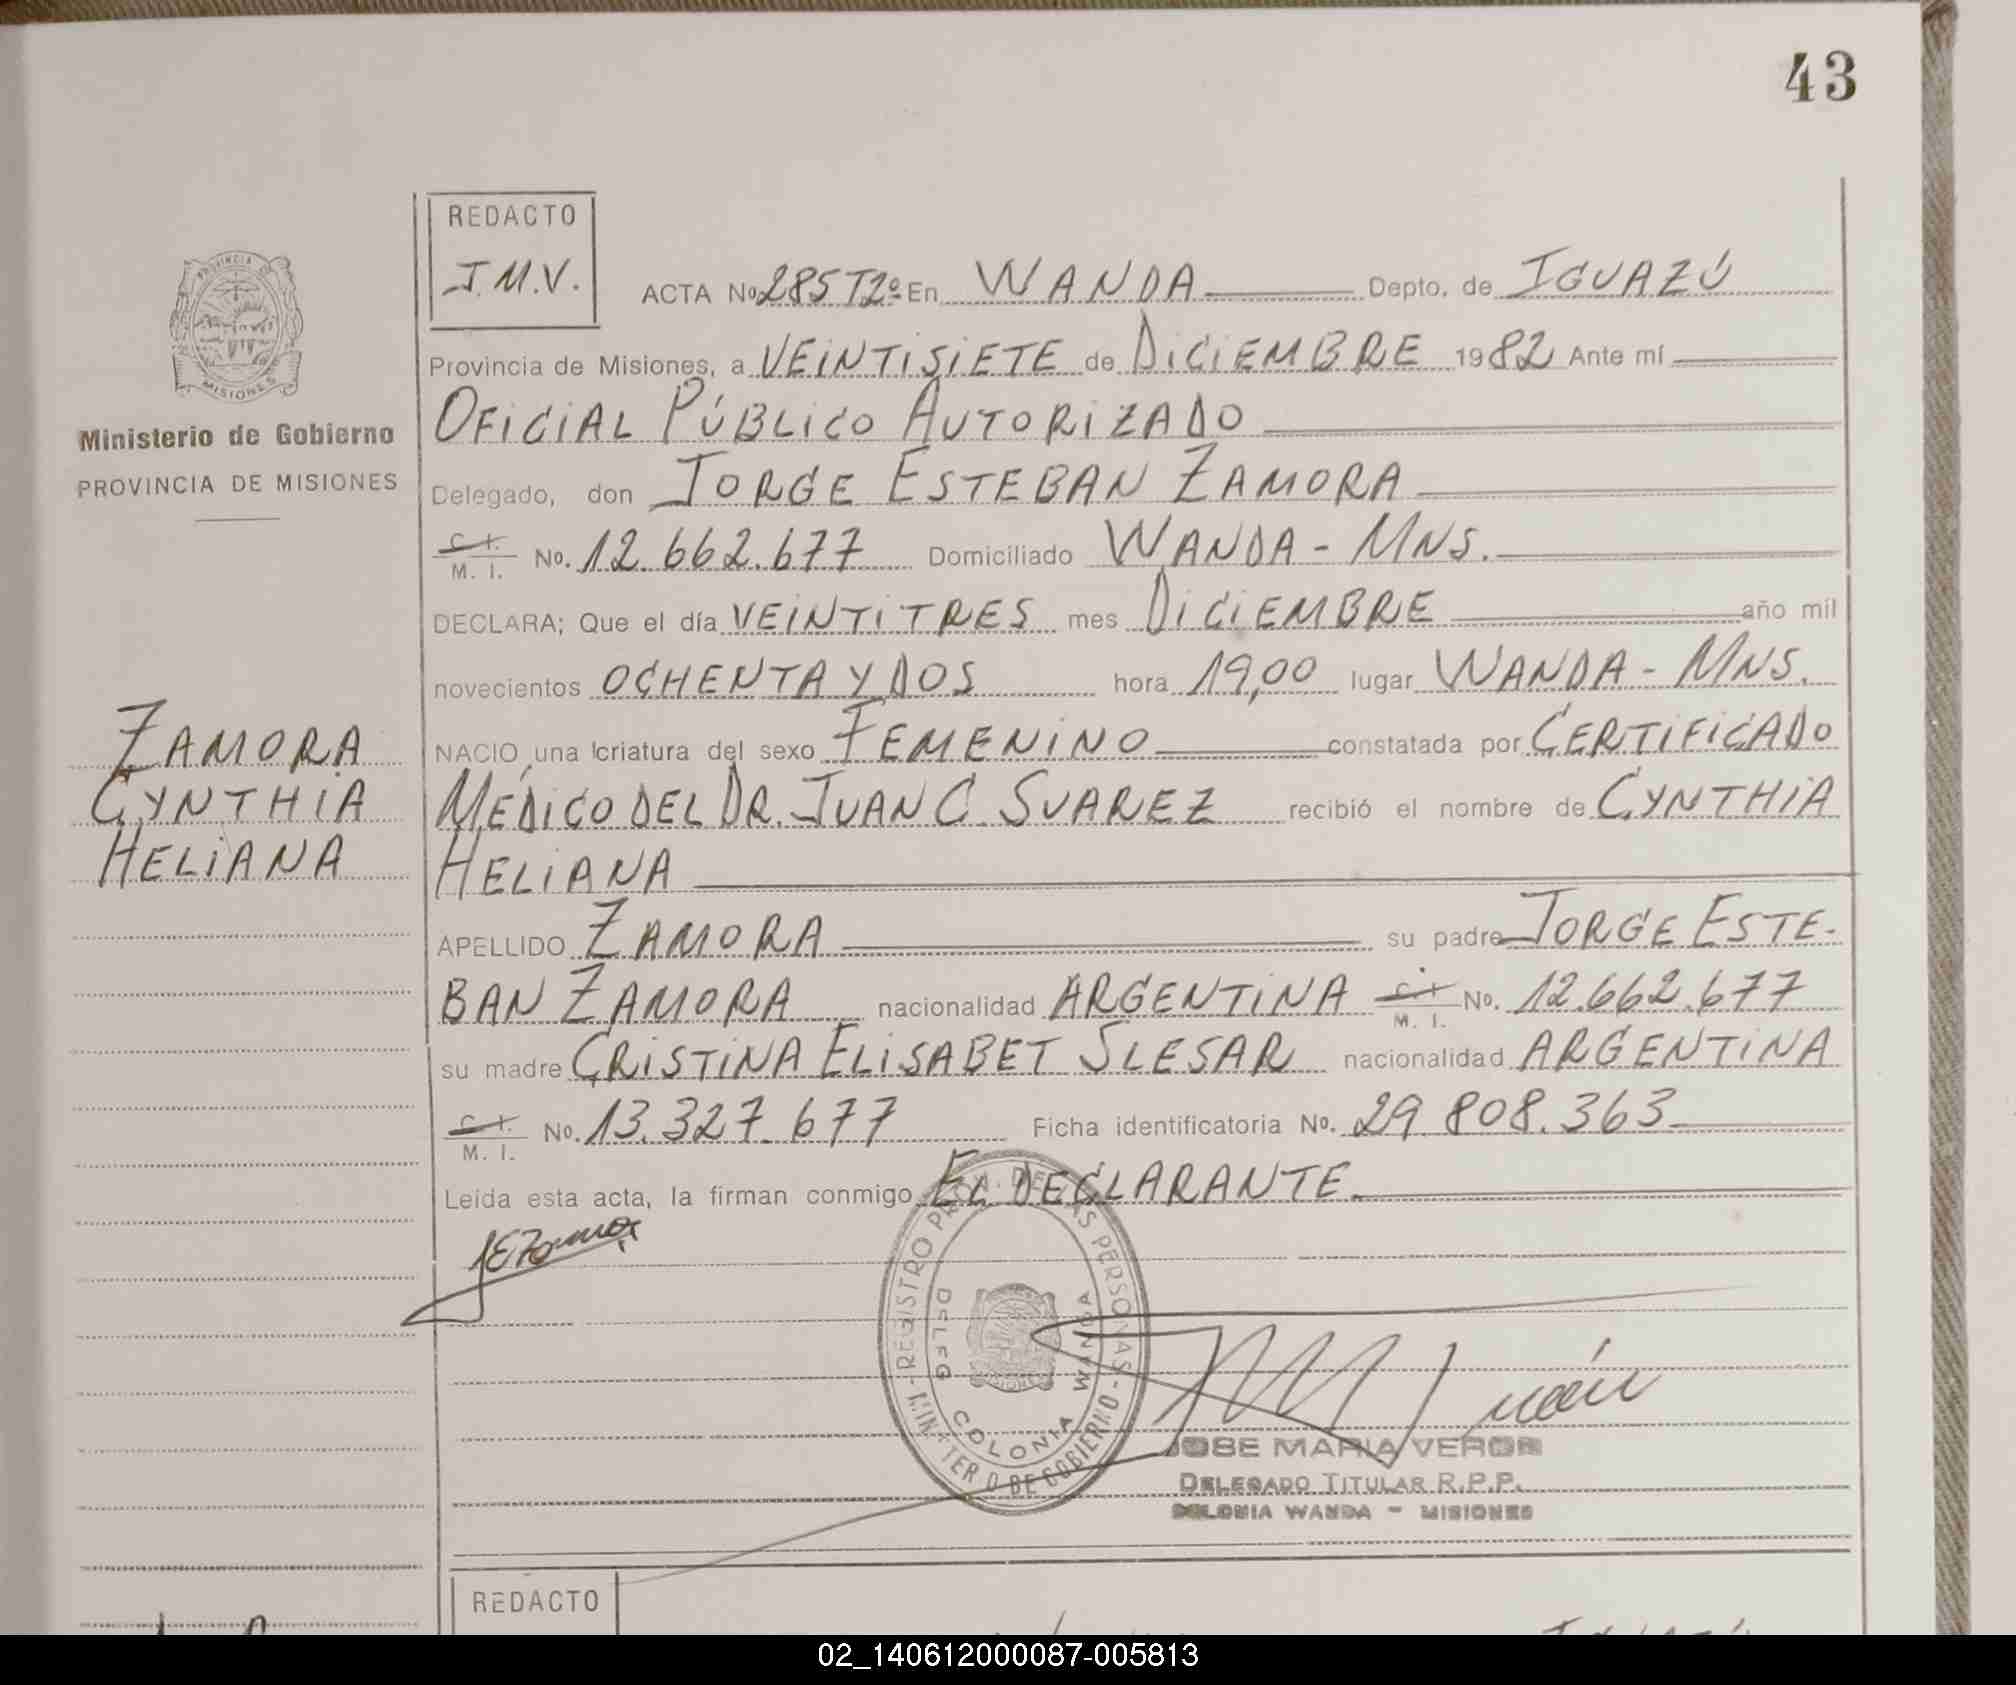 43
REDACTO
J.M.V.
ACTA No 285 T2º En WANDA Depto. de IGUAZÚ
Provincia de Misiones, a VEINTISIETE de DICIEMBRE 1982 Ante mí
OFICIAL PÚBLICO AUTORIZADO
Delegado, don JORGE ESTEBAN ZAMORA
C. I.
M. I. No. 12.662.677 Domiciliado WANDA - MNS.
DECLARA; Que el día VEINTITRES mes DICIEMBRE año mil
novecientos OCHENTA Y DOS hora 19,00 lugar WANDA - MNS.
NACIO una criatura del sexo FEMENINO constatada por CERTIFICADO
MÉDICO DEL DR. JUAN C. SUAREZ recibió el nombre de CYNTHIA
HELIANA
APELLIDO ZAMORA su padre JORGE ESTE-
BAN ZAMORA nacionalidad ARGENTINA C. I.
M. I. No. 12.662.677
su madre CRISTINA ELISABET SLESAR nacionalidad ARGENTINA
C. I.
M. I. No. 13.327.677 Ficha identificatoria No. 29.808.363
Leída esta acta, la firman conmigo EL DECLARANTE.
JEZamora
PROVINCIA DE
MISIONES
Ministerio de Gobierno
PROVINCIA DE MISIONES
ZAMORA
CYNTHIA
HELIANA
REGISTRO PROV. DE LAS PERSONAS - MINISTERIO DE GOBIERNO -
DELEG COLONIA WANDA
MISIONES
JOSE MARIA VERON
DELEGADO TITULAR R.P.P.
COLONIA WANDA - MISIONES
REDACTO
02_140612000087-005813